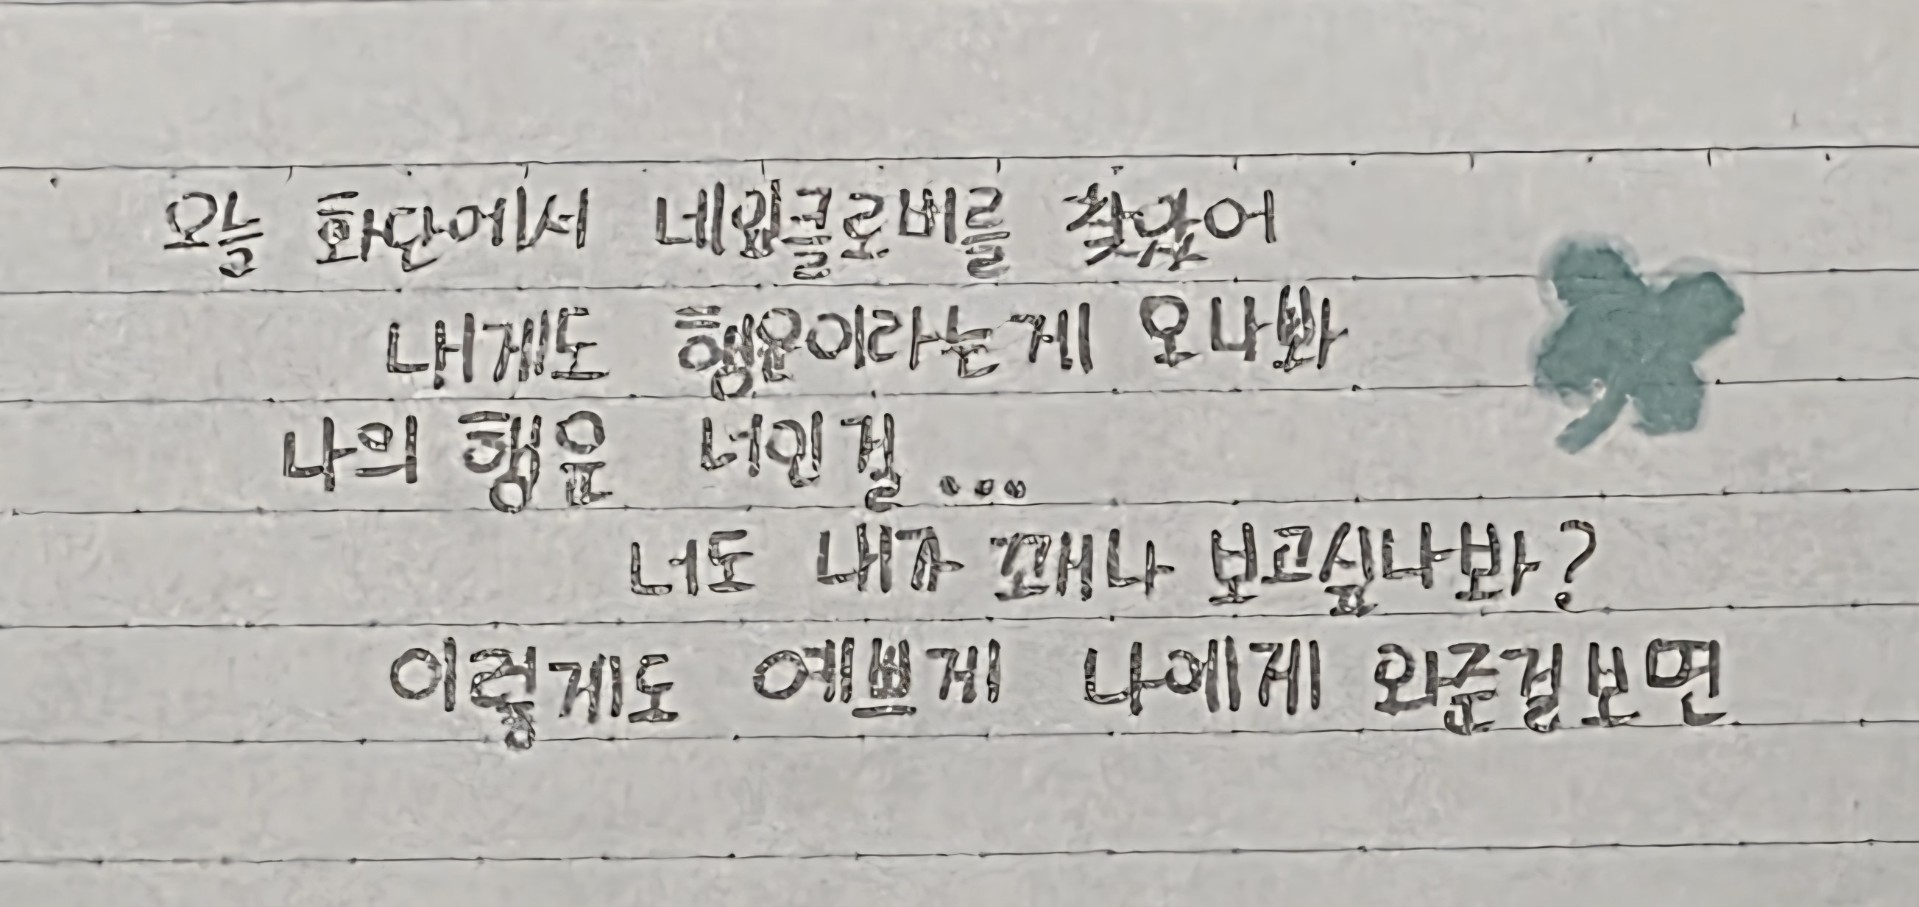 오늘 화단에서 네잎클로버를 찾았어
내게도 행운이라는게 오나봐
나의 행운 너인걸...
너도 내가 꽤나 보고싶나봐?
이렇게도 예쁘게 나에게 와준걸보면